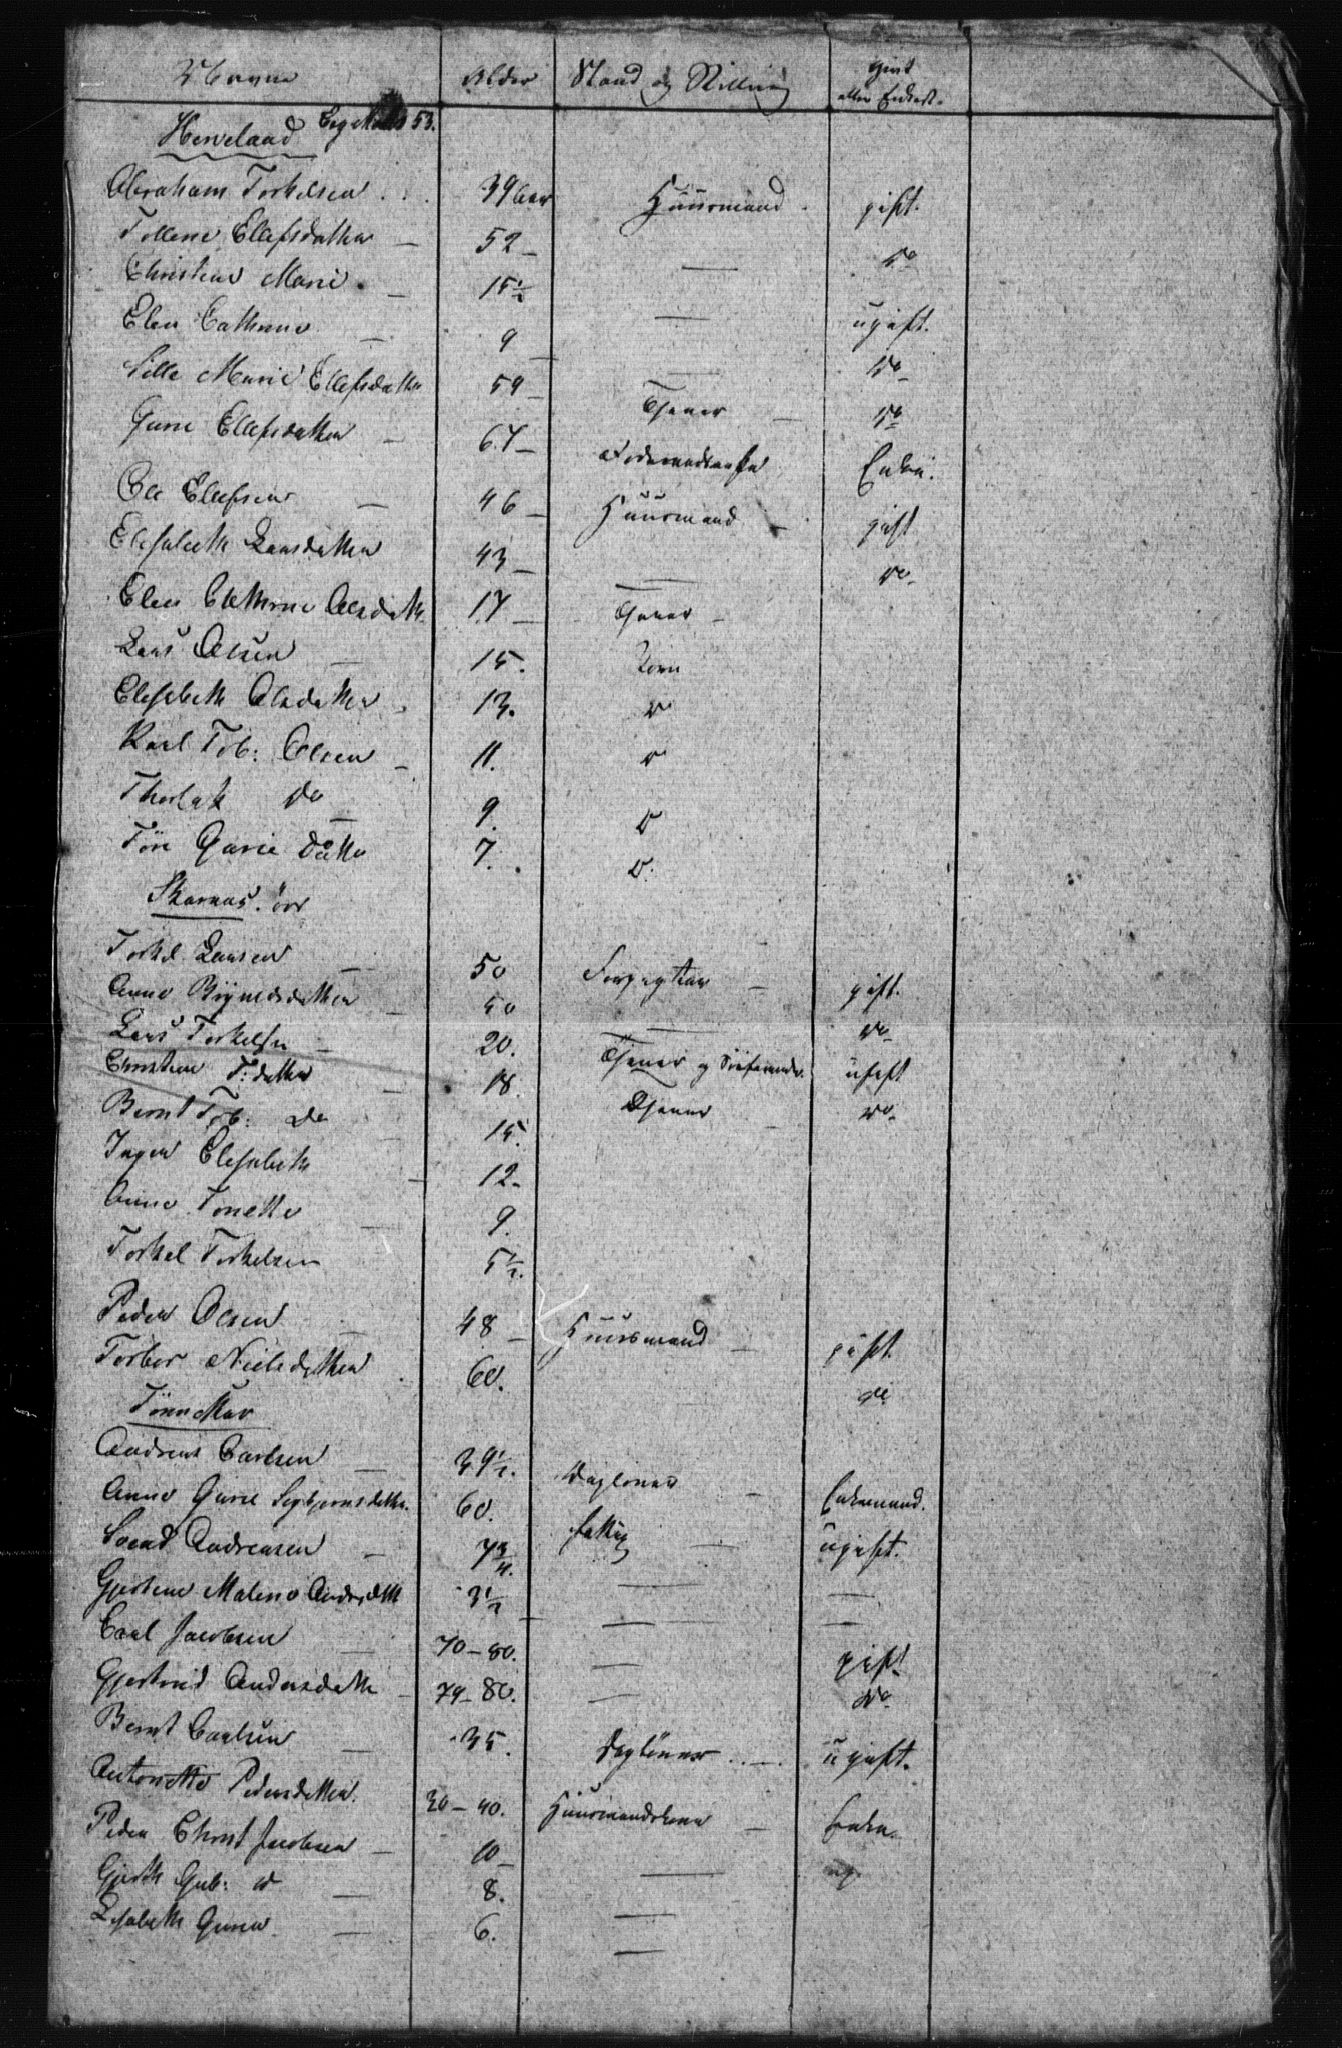 Alder Stand og Stilling givt
eller Enkest.
Hervelaad 53.
Abraham Torkelsen 39 Huusmand gift.
Tollene Ellefsdatter 52 do
Christine Marie 15½ ugift.
Elen Cathrine 9 do
Sille Marie Ellefsdatter 59 Tjener do
Gurie Ellefsdatter 67 Enke.
Ole Ellefsen 46 Huusmand gift
Elisabeth Larsdatter 43 do
Elen Cathrine Olsdatt. 17 Tjener
Lars Olsen 15.
Elisabeth Olsdatter 13. do
Karl Tob: Olsen 11. do
Thorlak do 9. do
Töre Gurie datter 7. do.
Skarnæs
Torkel Larsen 50 Forpagter gift.
Anne Bryneldsdatter 50 do
Lars Torkelsen 20. Tjener og ugift
Christine T: datter 18. Tjener do
Bernt Tob: do 15.
Inger Elisabeth 12.
Anne Tonette 9.
Torkel Torkelsen 5½.
Peder Olsen 48 Huusmand gift.
Torbor Nielsdatter 60. do
Andreas Carlsen 39½. Daglönner Enkemand.
Anne Gurie Sigbjörnsdatter. 60. fattig ugift.
Svend Andreasen 7¾.
Gjertine Malene Andrsdatt 3½
Carl Jacobsen 70-80. gift
Gjertrud Andersdatter 79-80. do
Bernt Carlsen 35. Daglönner ugift.
Antonette Pedersdatter. 30-40. Huusmandskone Enke.
Peder Christ Jacobsen 10 ug.
Gjerth Gub: do 8.
Elisabeth Gurie 6.